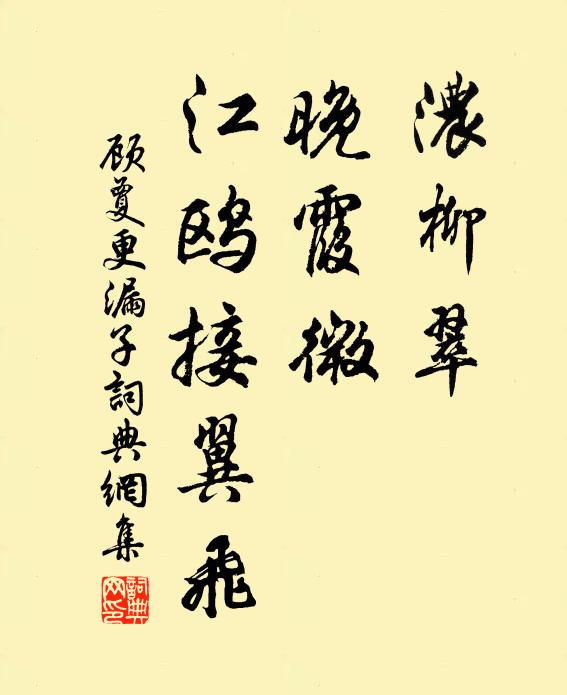 濃柳翠
晚霞微
江鷗接翼飛
顧敻更漏子詞典網集
詞典网印